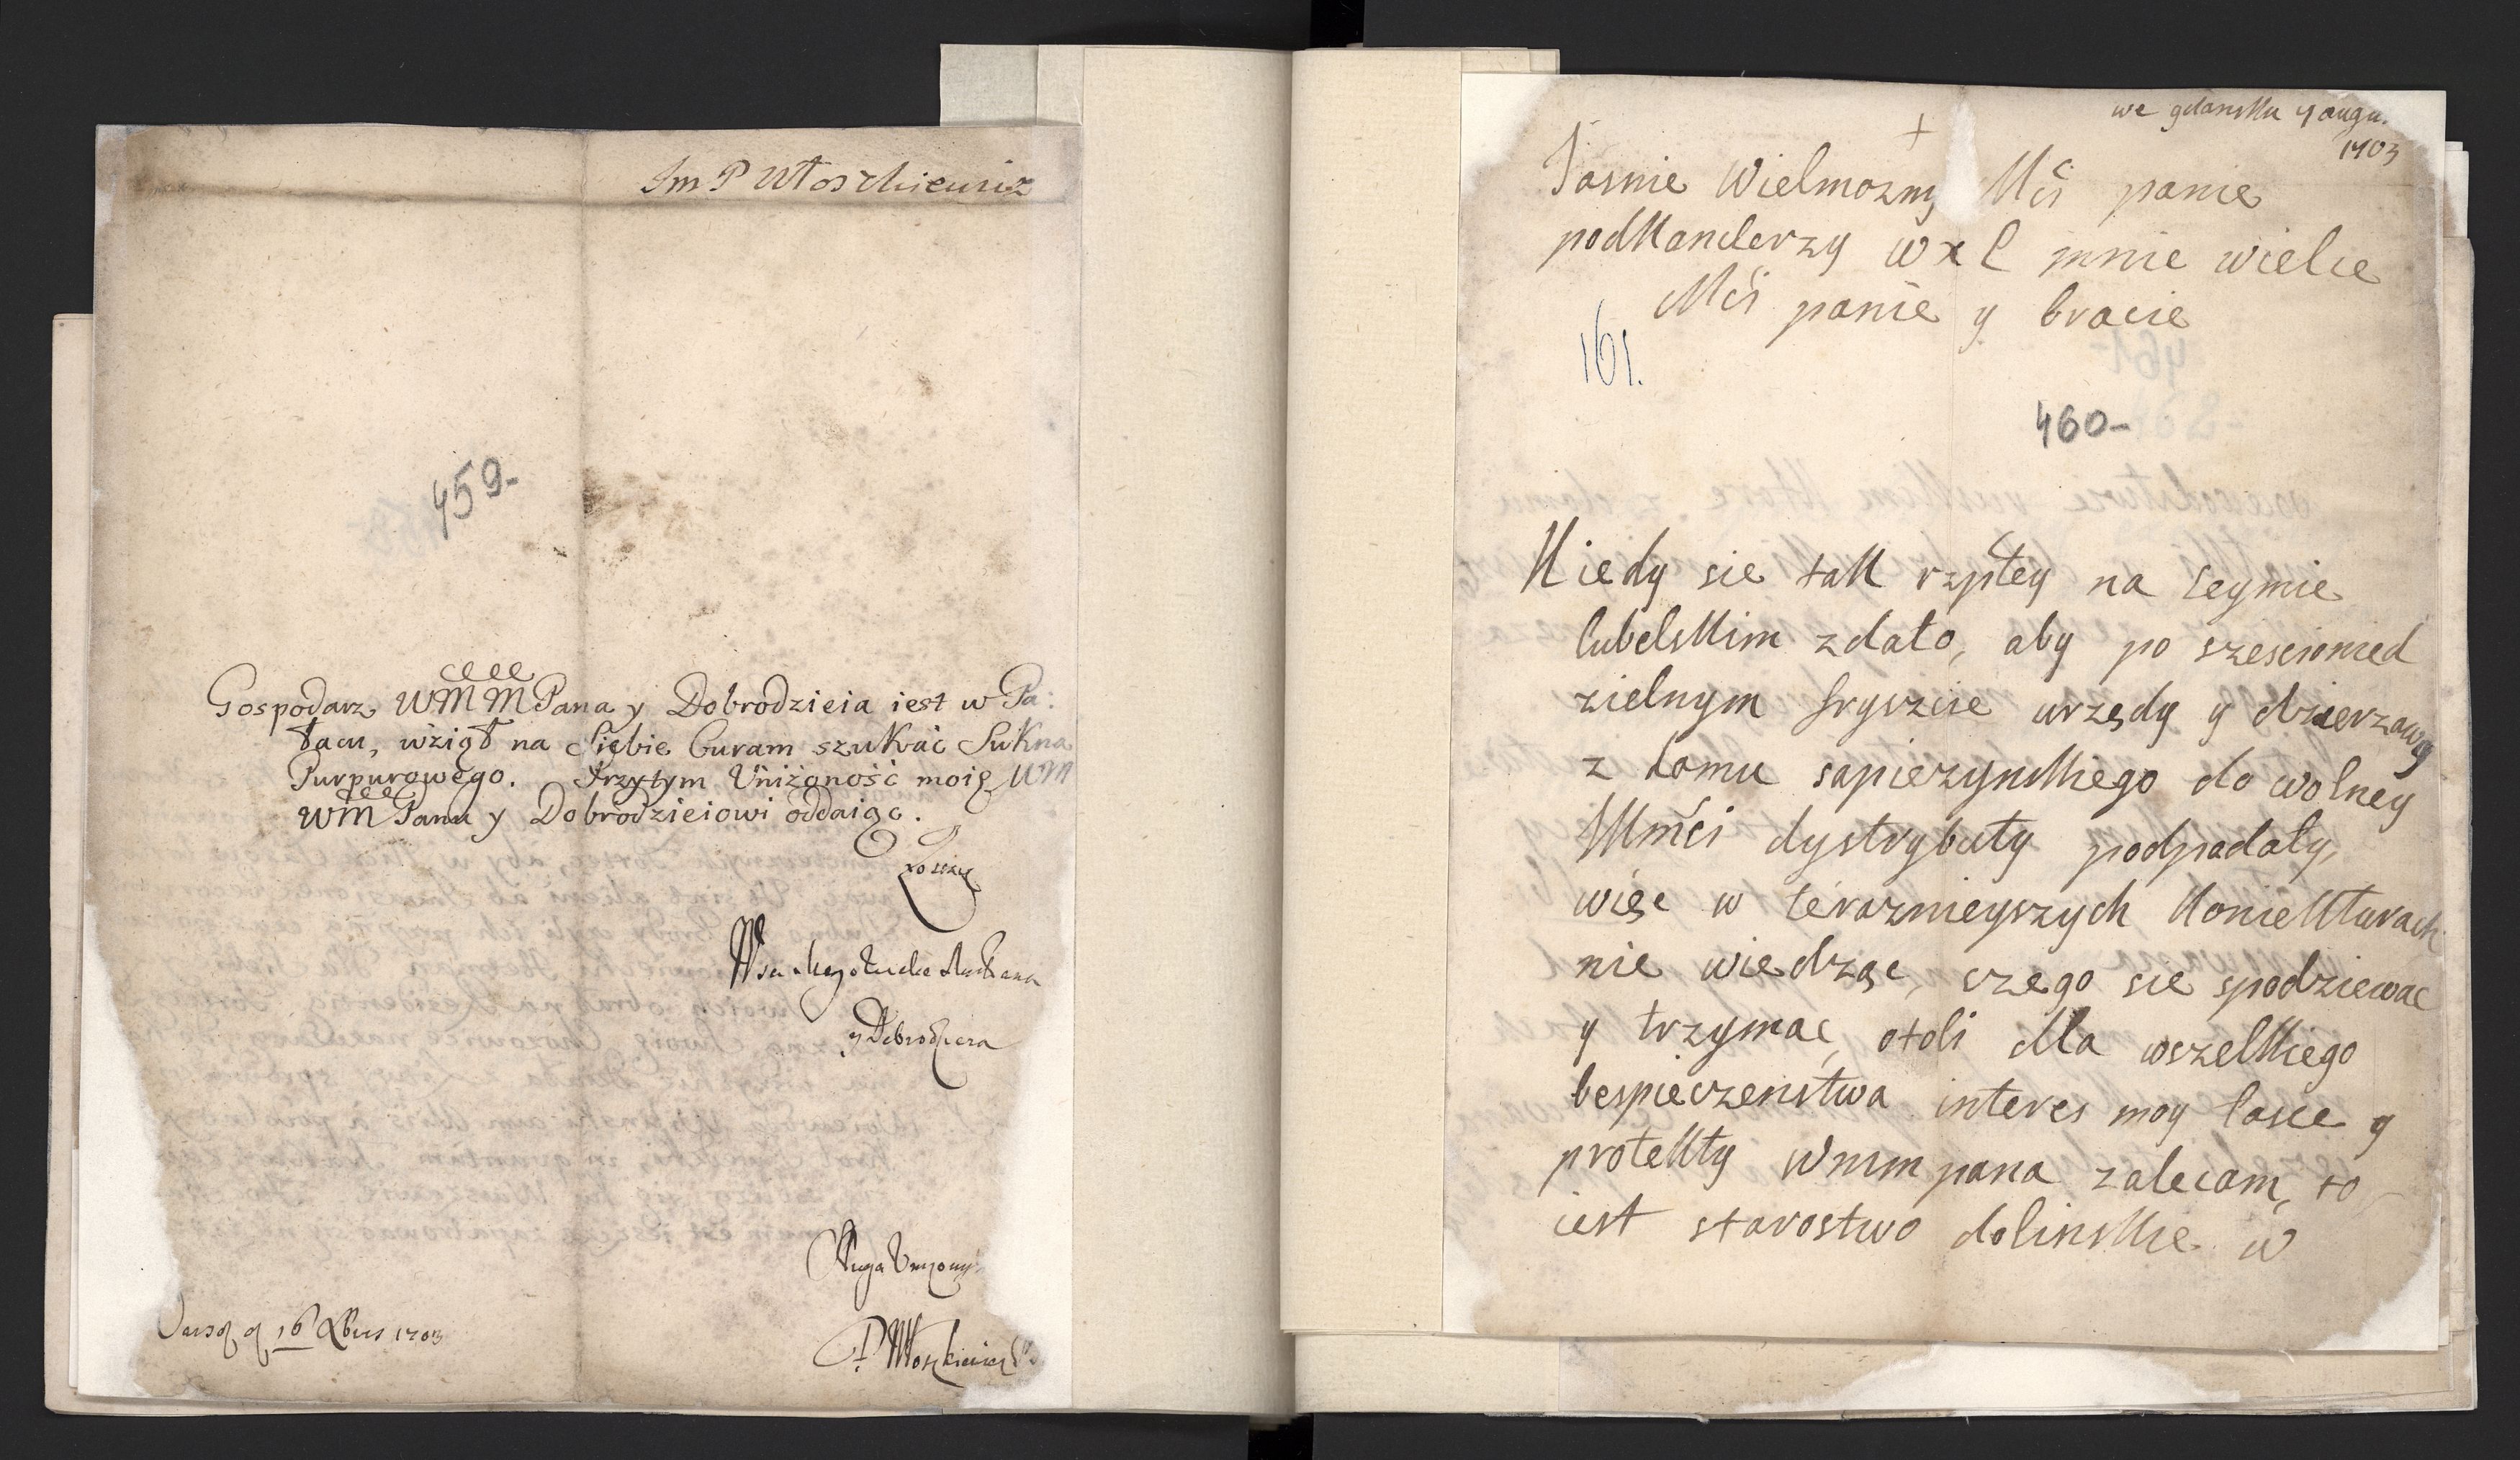 Im P Włoszkiewicz
459-
Gospodarz WMM Pana y Dobrodzieia iest w Pa:
łacu, wżiął na Siębie Curam szukać Sukna
Purpurowego. Przytym Uniżoność moię WM
WM Panu y Dobrodzieiowi oddaiąc.
y Dobrodzieia
Sługa Unizony
16 Xbris 1703
P. Włoszkiewicz
we gdansku 4 augu.
1703
+
Jasnie Wielmozny Mci panie
podkanclerzy w x l mnie wielce
Mci panie y bracie
161.
460-
Kiedy sie tak rzptey na seymie
lubelskim zdało, aby po szescionied
zielnym fryszcie urzędy y dzierzawy
z domu sapiezynskiego do wolney
JKmci dystrybuty podpadały,
więc w teraznieyszych koniekturach
nie wiedząc, czego sie spodziewac
y trzymac, otoli dla wszelkiego
bespieczenstwa interes moy lasce y
protekty Wmm pana zalecam, to
iest starostwo dolinskie w